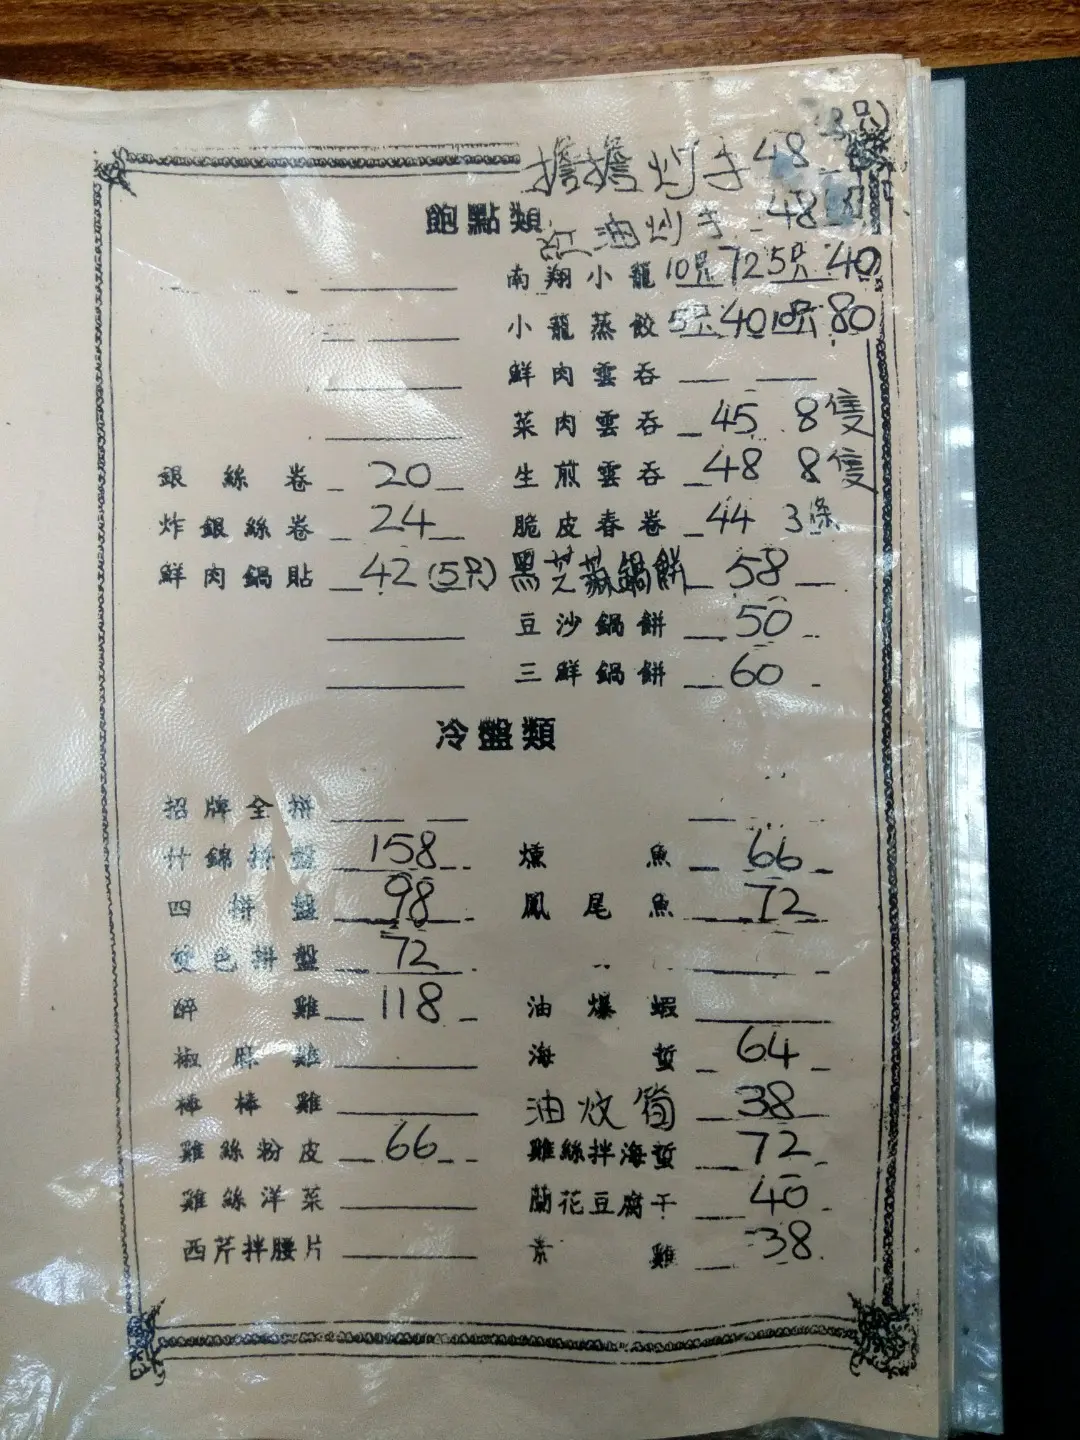 擔擔炒手 48
飽點類
紅油炒手 48
南翔小籠 10只 72 5只 40
小籠蒸餃 5只 40 10只 80
鮮肉雲吞
菜肉雲吞 45 8隻
銀絲卷 20 生煎雲吞 48 8隻
炸銀絲卷 24 脆皮春卷 44 3條
鮮肉鍋貼 42 (5只) 黑芝蔴鍋餅 58
豆沙鍋餅 50
三鮮鍋餅 60
冷盤類
招牌全拼
什錦拼盤 158 燻魚 66
四拼盤 98 鳳尾魚 72
雙色拼盤 72
醉雞 118 油爆蝦
椒麻雞 海蜇 64
棒棒雞 油炆筍 38
雞絲粉皮 66 雞絲拌海蜇 72
雞絲洋菜 蘭花豆腐干 40
西芹拌腰片 素雞 38